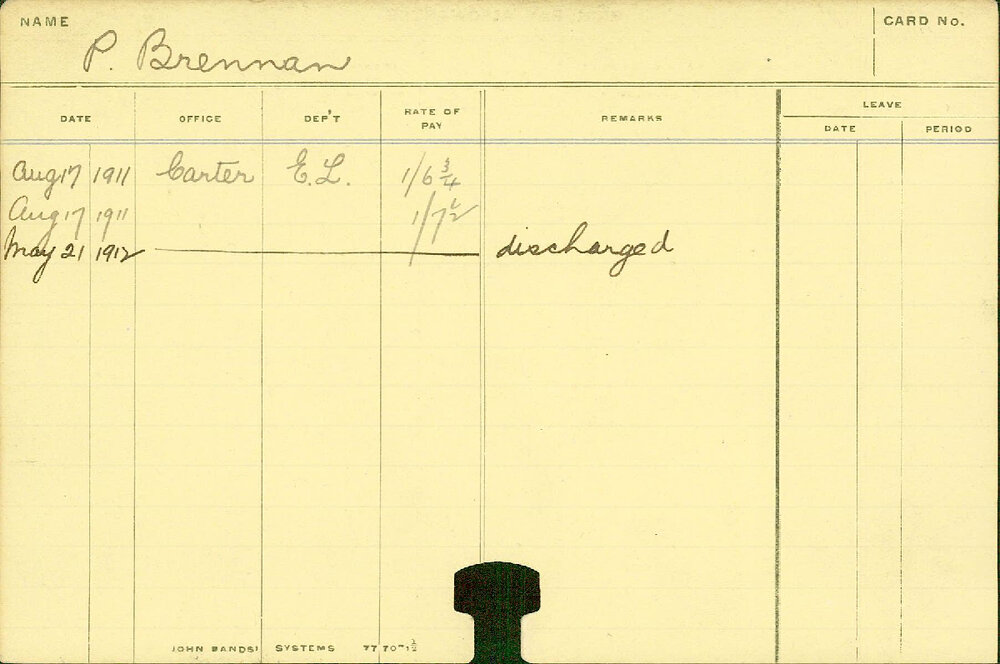 NAME
CARD No.
P. Brennan
DATE OFFICE DEP'T RATE OF PAY REMARKS LEAVE
DATE PERIOD
Aug 17 1911 Carter E.L. 1/6 3/4
Aug 17 1911 1/7 1/2
May 21 1912 discharged
JOHN SANDS' SYSTEMS